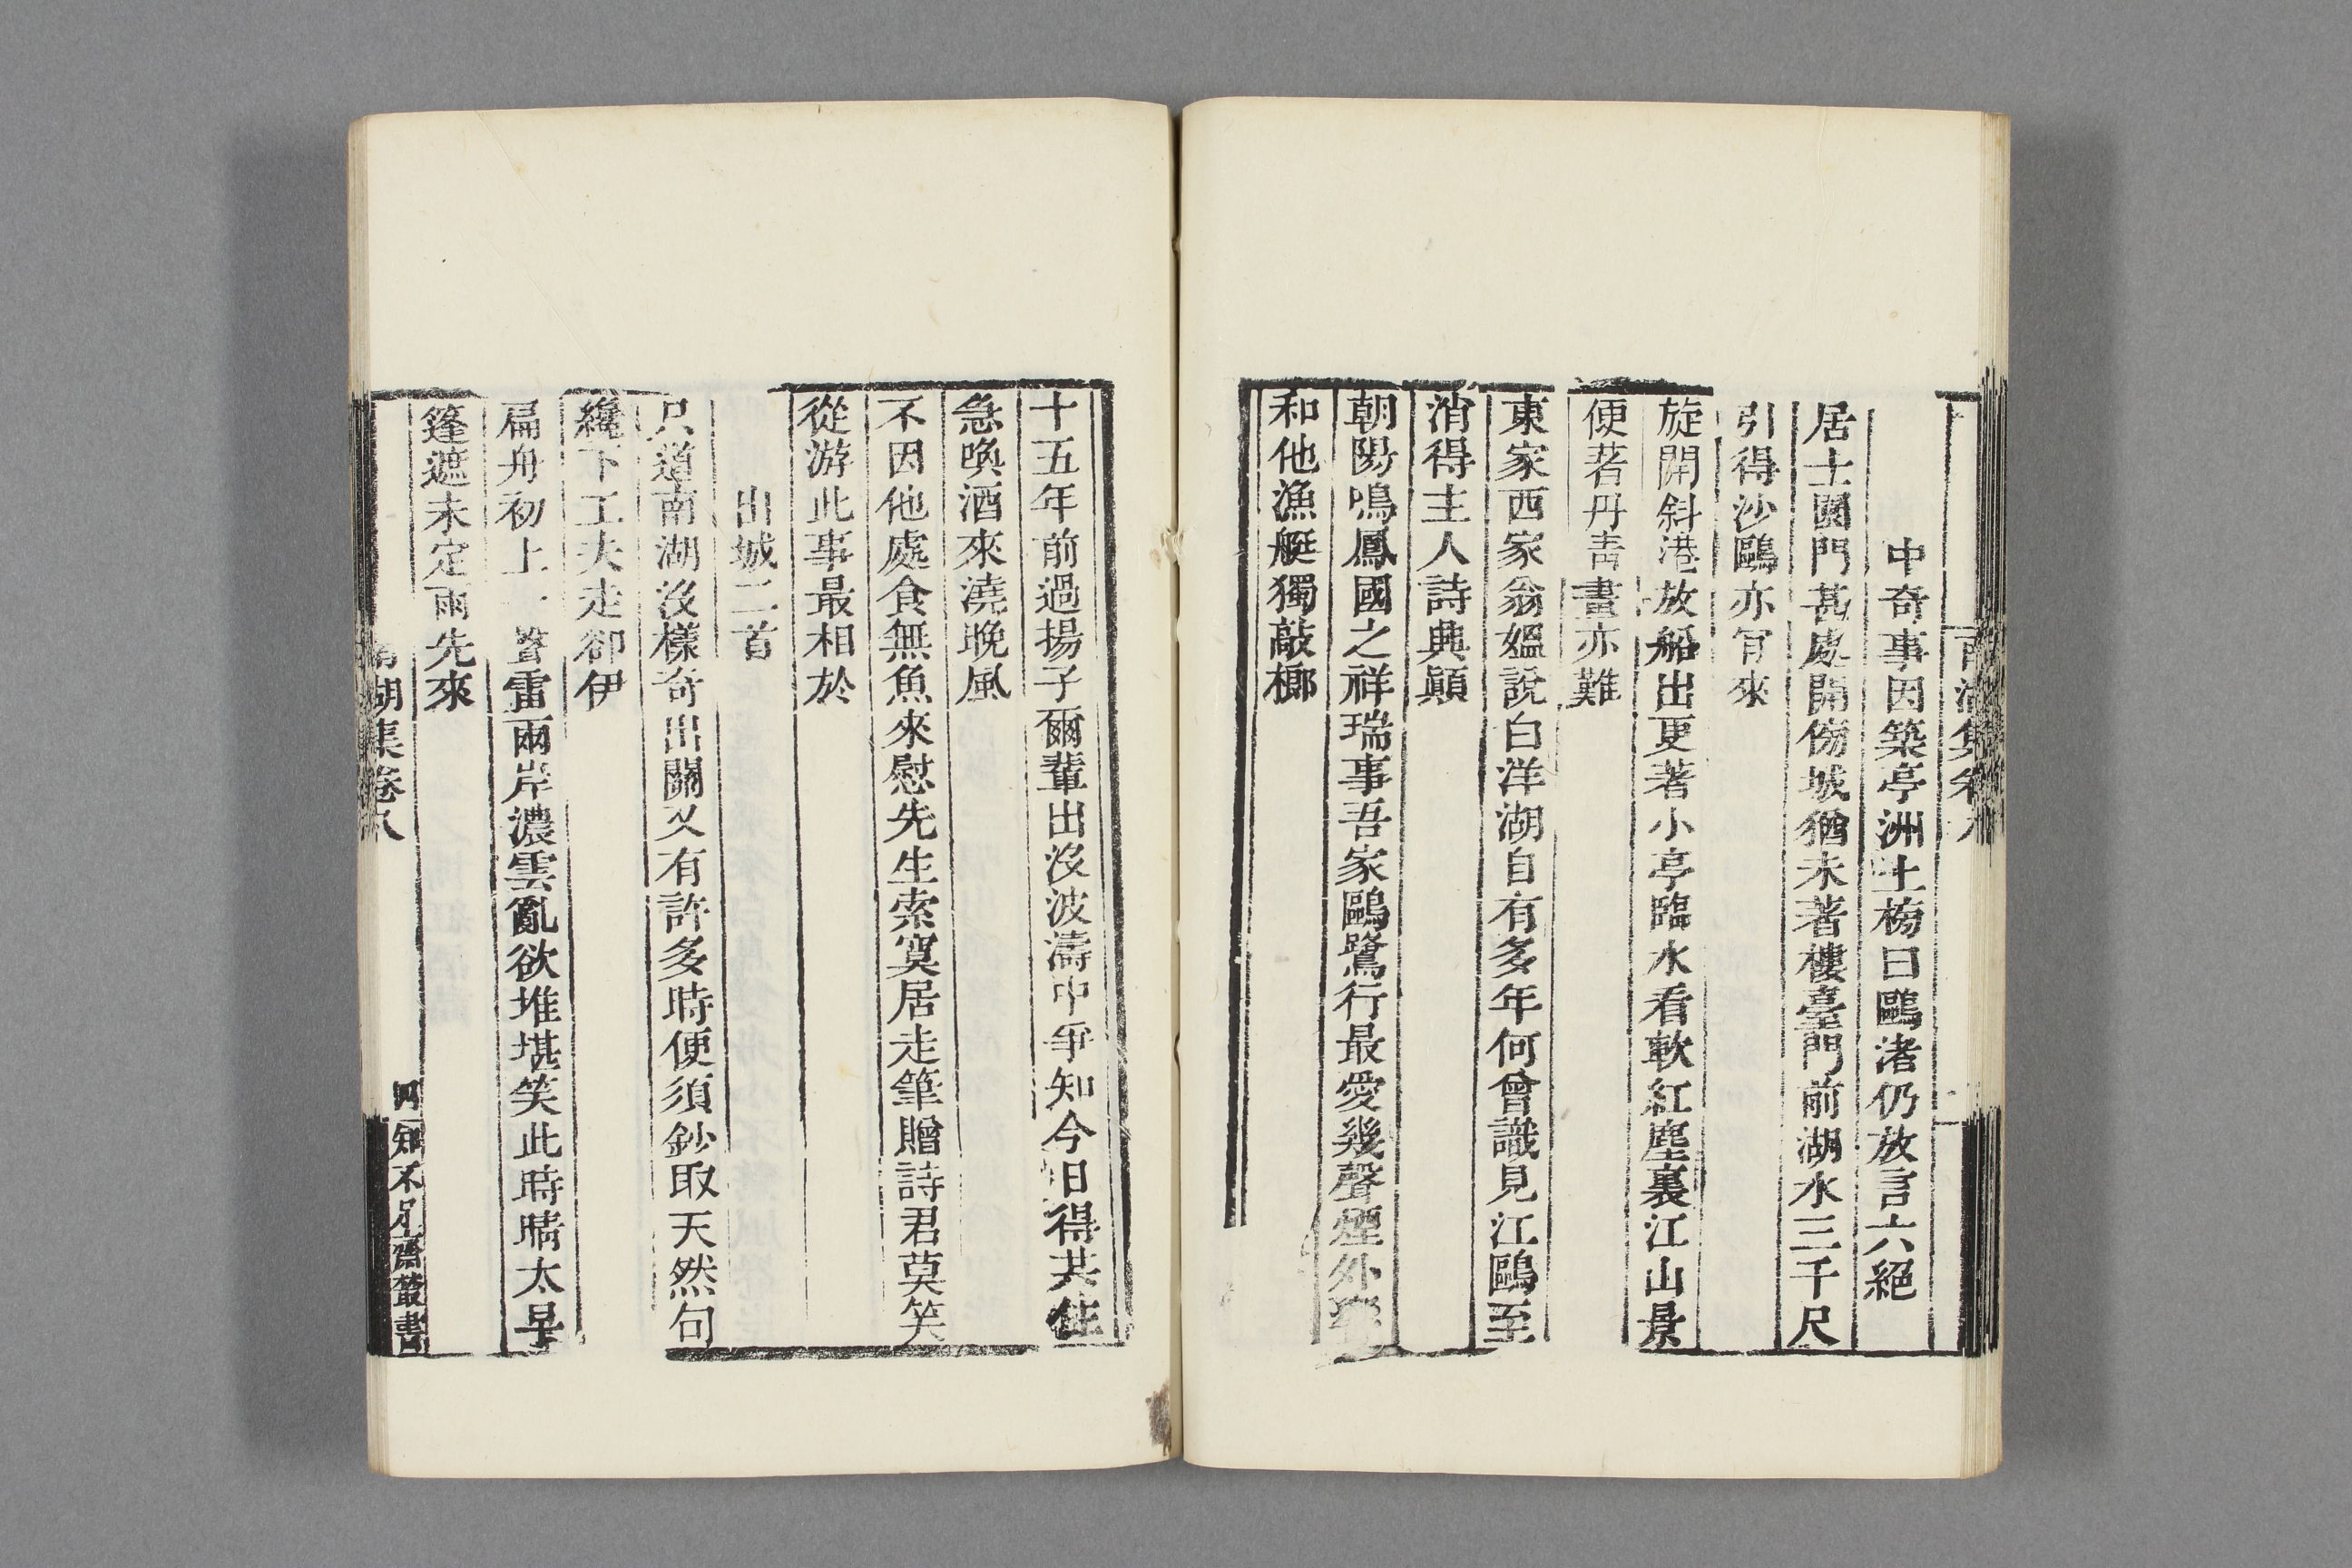 中奇事因築亭洲上榜曰鷗渚仍放言六絕
居士園門甚處開傍城猶未著樓臺門前湖水三千尺
引得沙鷗亦肯來
旋開斜港放船出更著小亭臨水看軟紅塵裏江山景
便著丹青畫亦難
東家西家翁媼說白洋湖自有多年何曾識見江鷗至
消得主人詩興顛
朝陽鳴鳳國之祥瑞事吾家鷗鷺行最愛幾聲煙外
和他漁艇獨敲榔
十五年前過揚子爾輩出沒波濤中爭知今日得共住
急喚酒來澆晚風
不因他處食無魚來慰先生索寞居走筆贈詩君莫笑
從游此事最相於
出城二首
只道南湖沒樣奇出關又有許多時便須鈔取天然句
纔下工夫走卻伊
扁舟初上一聲雷兩岸濃雲亂欲堆堪笑此時晴太早
篷遮未定雨先來
南湖集卷八
四
知不足齋叢書